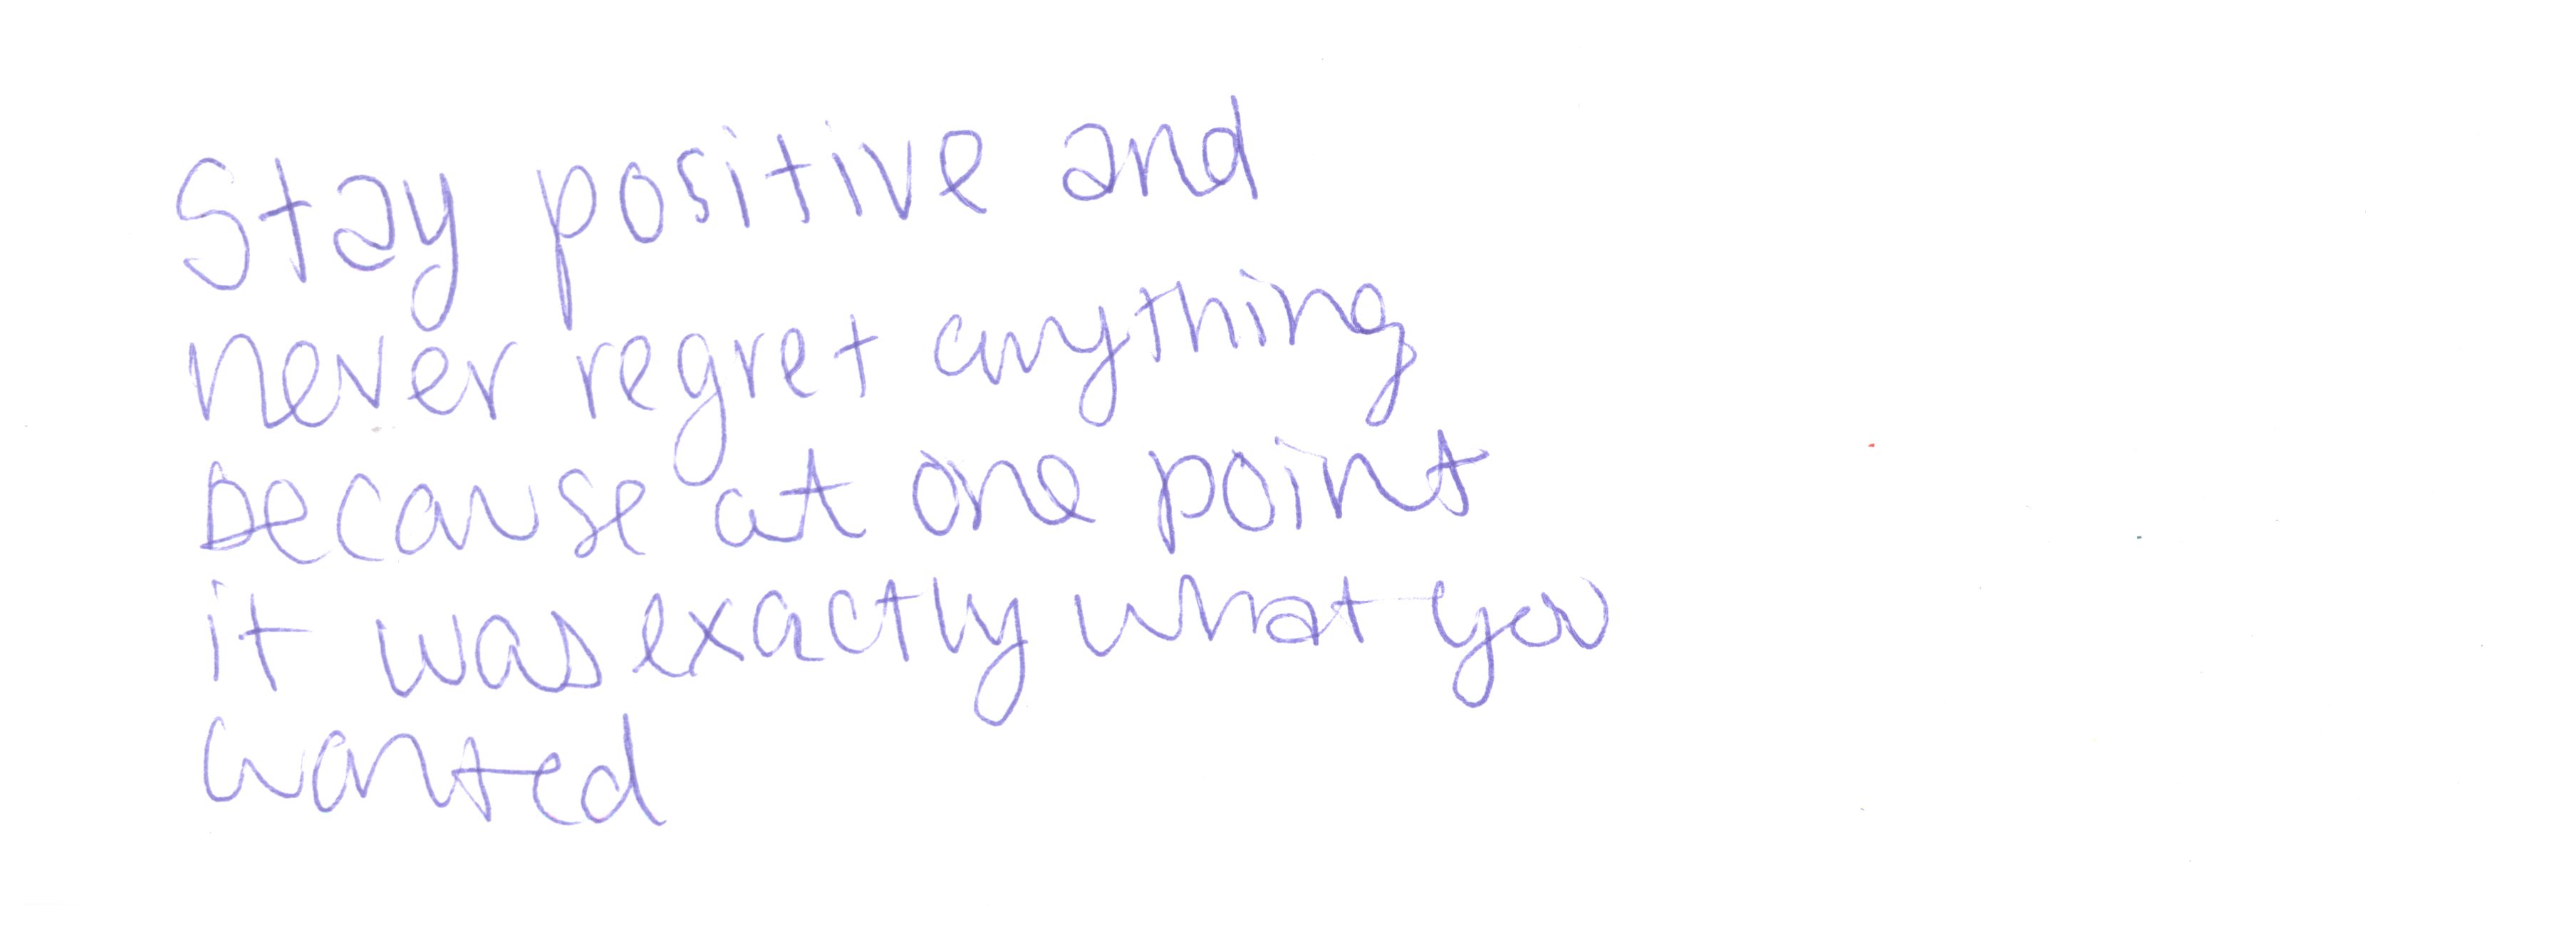 Stay positive and
never regret anything
because at one point
it was exactly what you
wanted